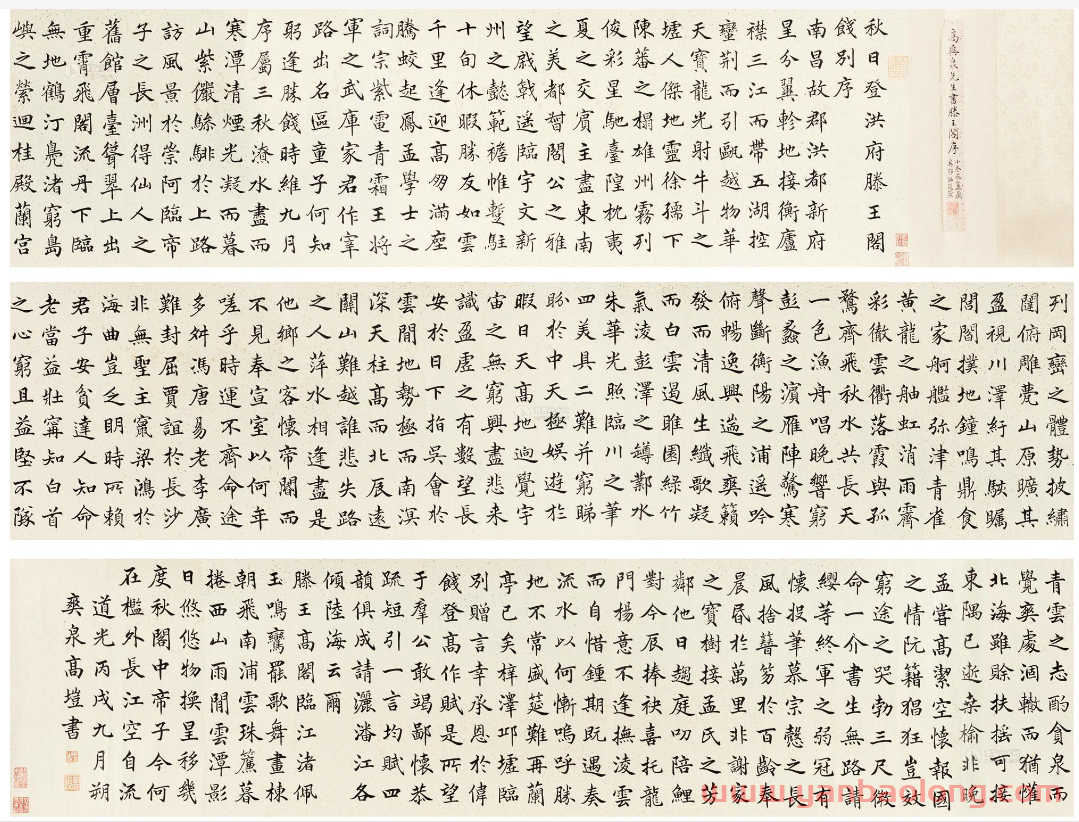 高爽泉先生書滕王閣序
秋日登洪府滕王閣
餞別序
南昌故郡洪都新府
星分翼軫地接衡廬
襟三江而帶五湖控
蠻荊而引甌越物華
天寶龍光射牛斗之
墟人傑地靈徐孺下
陳蕃之榻雄州霧列
俊彩星馳臺隍枕夷
夏之交賓主盡東南
之美都督閻公之雅
望棨戟遥臨宇文新
州之懿範襜帷暫駐
十旬休暇勝友如雲
千里逢迎高朋滿座
騰蛟起鳳孟學士之
詞宗紫電青霜王將
軍之武庫家君作宰
路出名區童子何知
躬逢勝餞時維九月
序屬三秋潦水盡而
寒潭清煙光凝而暮
山紫儼驂騑於上路
訪風景於崇阿臨帝
子之長洲得仙人之
舊館層臺聳翠上出
重霄飛閣流丹下臨
無地鶴汀鳧渚窮島
嶼之縈迴桂殿蘭宮
列岡巒之體勢披繡
闥俯雕甍山原曠其
盈視川澤紆其駭矚
閭閻撲地鐘鳴鼎食
之家舸艦弥津青雀
黃龍之舳虹消雨霽
彩徹雲衢落霞與孤
鶩齊飛秋水共長天
一色漁舟唱晚響窮
彭蠡之濱雁陣驚寒
聲斷衡陽之浦遥吟
俯暢逸興遄飛爽籟
發而清風生纖歌凝
而白雲遏睢園綠竹
氣淩彭澤之罇鄴水
朱華光照臨川之筆
四美具二難并窮睇
眄於中天極娛遊於
暇日天高地迥覺宇
宙之無窮興盡悲来
識盈虛之有數望長
安於日下指吳會於
雲間地勢極而南溟
深天柱高而北辰遠
關山難越誰悲失路
之人萍水相逢盡是
他鄉之客懷帝閽而
不見奉宣室以何年
嗟乎時運不齊命途
多舛馮唐易老李廣
難封屈賈誼於長沙
非無聖主竄梁鴻於
海曲豈乏明時所賴
君子安貧達人知命
老當益壯寧知白首
之心窮且益堅不墜
青雲之志酌貪泉而
覺爽處涸轍而猶懽
北海雖賒扶搖可接
東隅已逝桑榆非晚
孟嘗高潔空懷報國
之情阮籍猖狂豈效
窮途之哭勃三尺微
命一介書生無路請
纓等終軍之弱冠有
懷投筆慕宗慤之長
風捨簪笏於百齡奉
晨昏於萬里非謝家
之寶樹接孟氏之芳
鄰他日趨庭叨陪鯉
對今辰捧袂喜托龍
門楊意不逢撫淩雲
而自惜鍾期既遇奏
流水以何慚嗚呼勝
地不常盛筵難再蘭
亭已矣梓澤邱墟臨
別贈言幸承恩於偉
餞登高作賦是所望
于羣公敢竭鄙懷恭
疏短引一言均賦四
韻俱成請灑潘江各
傾陸海云爾
滕王高閣臨江渚佩
玉鳴鸞罷歌舞畫棟
朝飛南浦雲珠簾暮
捲西山雨閒雲潭影
日悠悠物換星移幾
度秋閣中帝子今何
在檻外長江空自流
道光丙戌九月朔
爽泉高塏書
www.yanbaolong.com